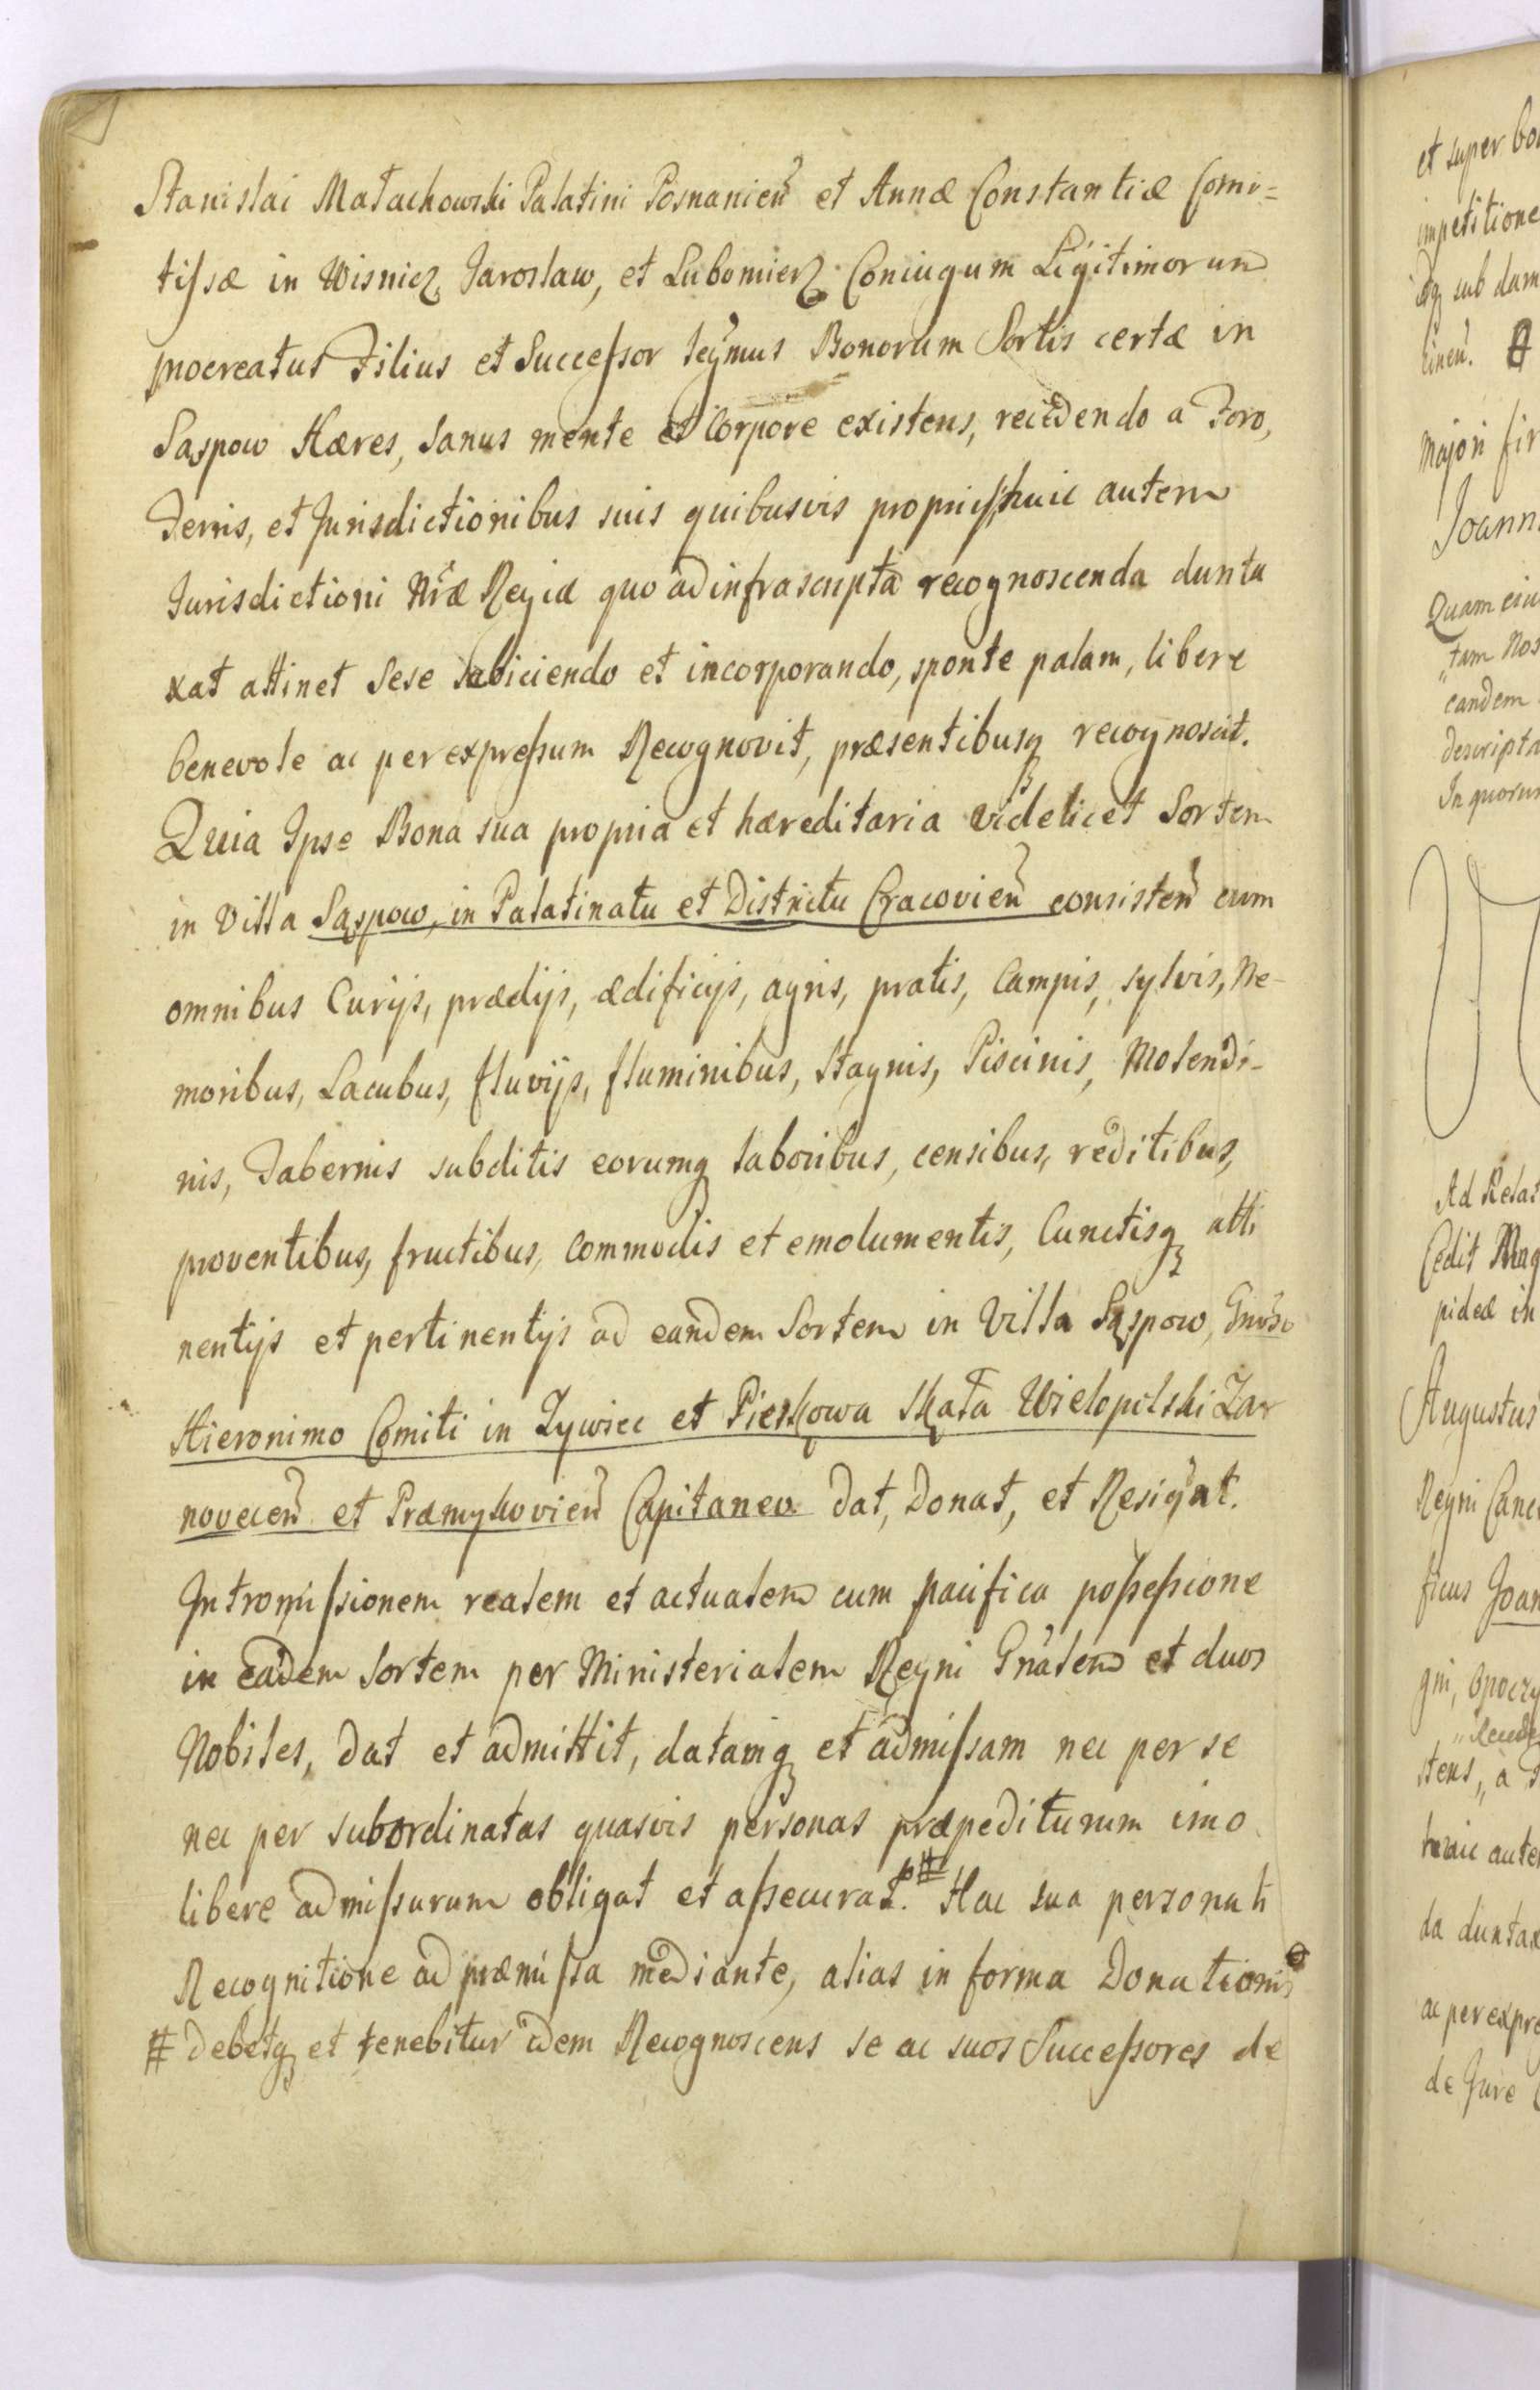 Stanislai Małachowski Palatini Posnanień et Annæ Constantiæ Comi=
tissæ in Wisnicz, Jaroslaw, et Lubomierz Coniugum Legitimorum
procreatus Filius et Successor legmus Bonorum Sortis certæ in
Sąspow Hæres, sanus mente et Corpore existens, recedendo a Foro,
Terris, et Jurisdictionibus suis quibusvis proprijs, huic autem
Jurisdictioni Nræ Regiæ quo ad infrascripta recognoscenda dunta
xat attinet sese subiiciendo et incorporando, sponte palam, libere
benevole ac per expressum Recognovit, præsentibusq recognoscit.
Quia Ipse Bona sua propria et hæreditaria videlicet Sortem
in Villa Sąspow, in Palatinatu et Districtu Cracovień consisteń cum
omnibus Curijs, prædijs, ædificijs, agris, pratis, Campis, sylvis, Ne-
moribus, Lacubus, fluvijs, fluminibus, stagnis, Piscinis, Molendi-
nis, Tabernis subditis eorumq laboribus, censibus, reditibus,
proventibus, fructibus, commodis et emolumentis, Cunctisq atti
nentijs et pertinentijs ad eandem Sortem in Villa Sąspow, Gnoso
Hieronimo Comiti in Zywiec et Pieskowa Skała Wielopolski Zar
novecen et Præmykovień Capitaneo dat, Donat, et Resignat.
Intromissionem realem et actualem cum pacifica possessione
in eadem Sortem per Ministerialem Regni Gnalem et duos
Nobiles, dat et admittit, datamq et admissam nec per se
nec per subordinatas quasvis personas præpediturum imo
libere admissurum obligat et assecurat. # Hac sua personali
Recognitione ad præmissa mediante, alias in forma Donationis
# debetq et tenebitur idem Recognoscens se ac suos Successores de
et super bo
impetitione
sub dam
majori fir
Joann
Quam eiu
tam Nos
eandem
descripta
In quorum
Ad Relat
Cedit Mag
pideæ in
Augustus
Regni Canc
ficus Joan
gni, Opoczy
stens, a
huic aute
da duntax
ac per expre
de Jure